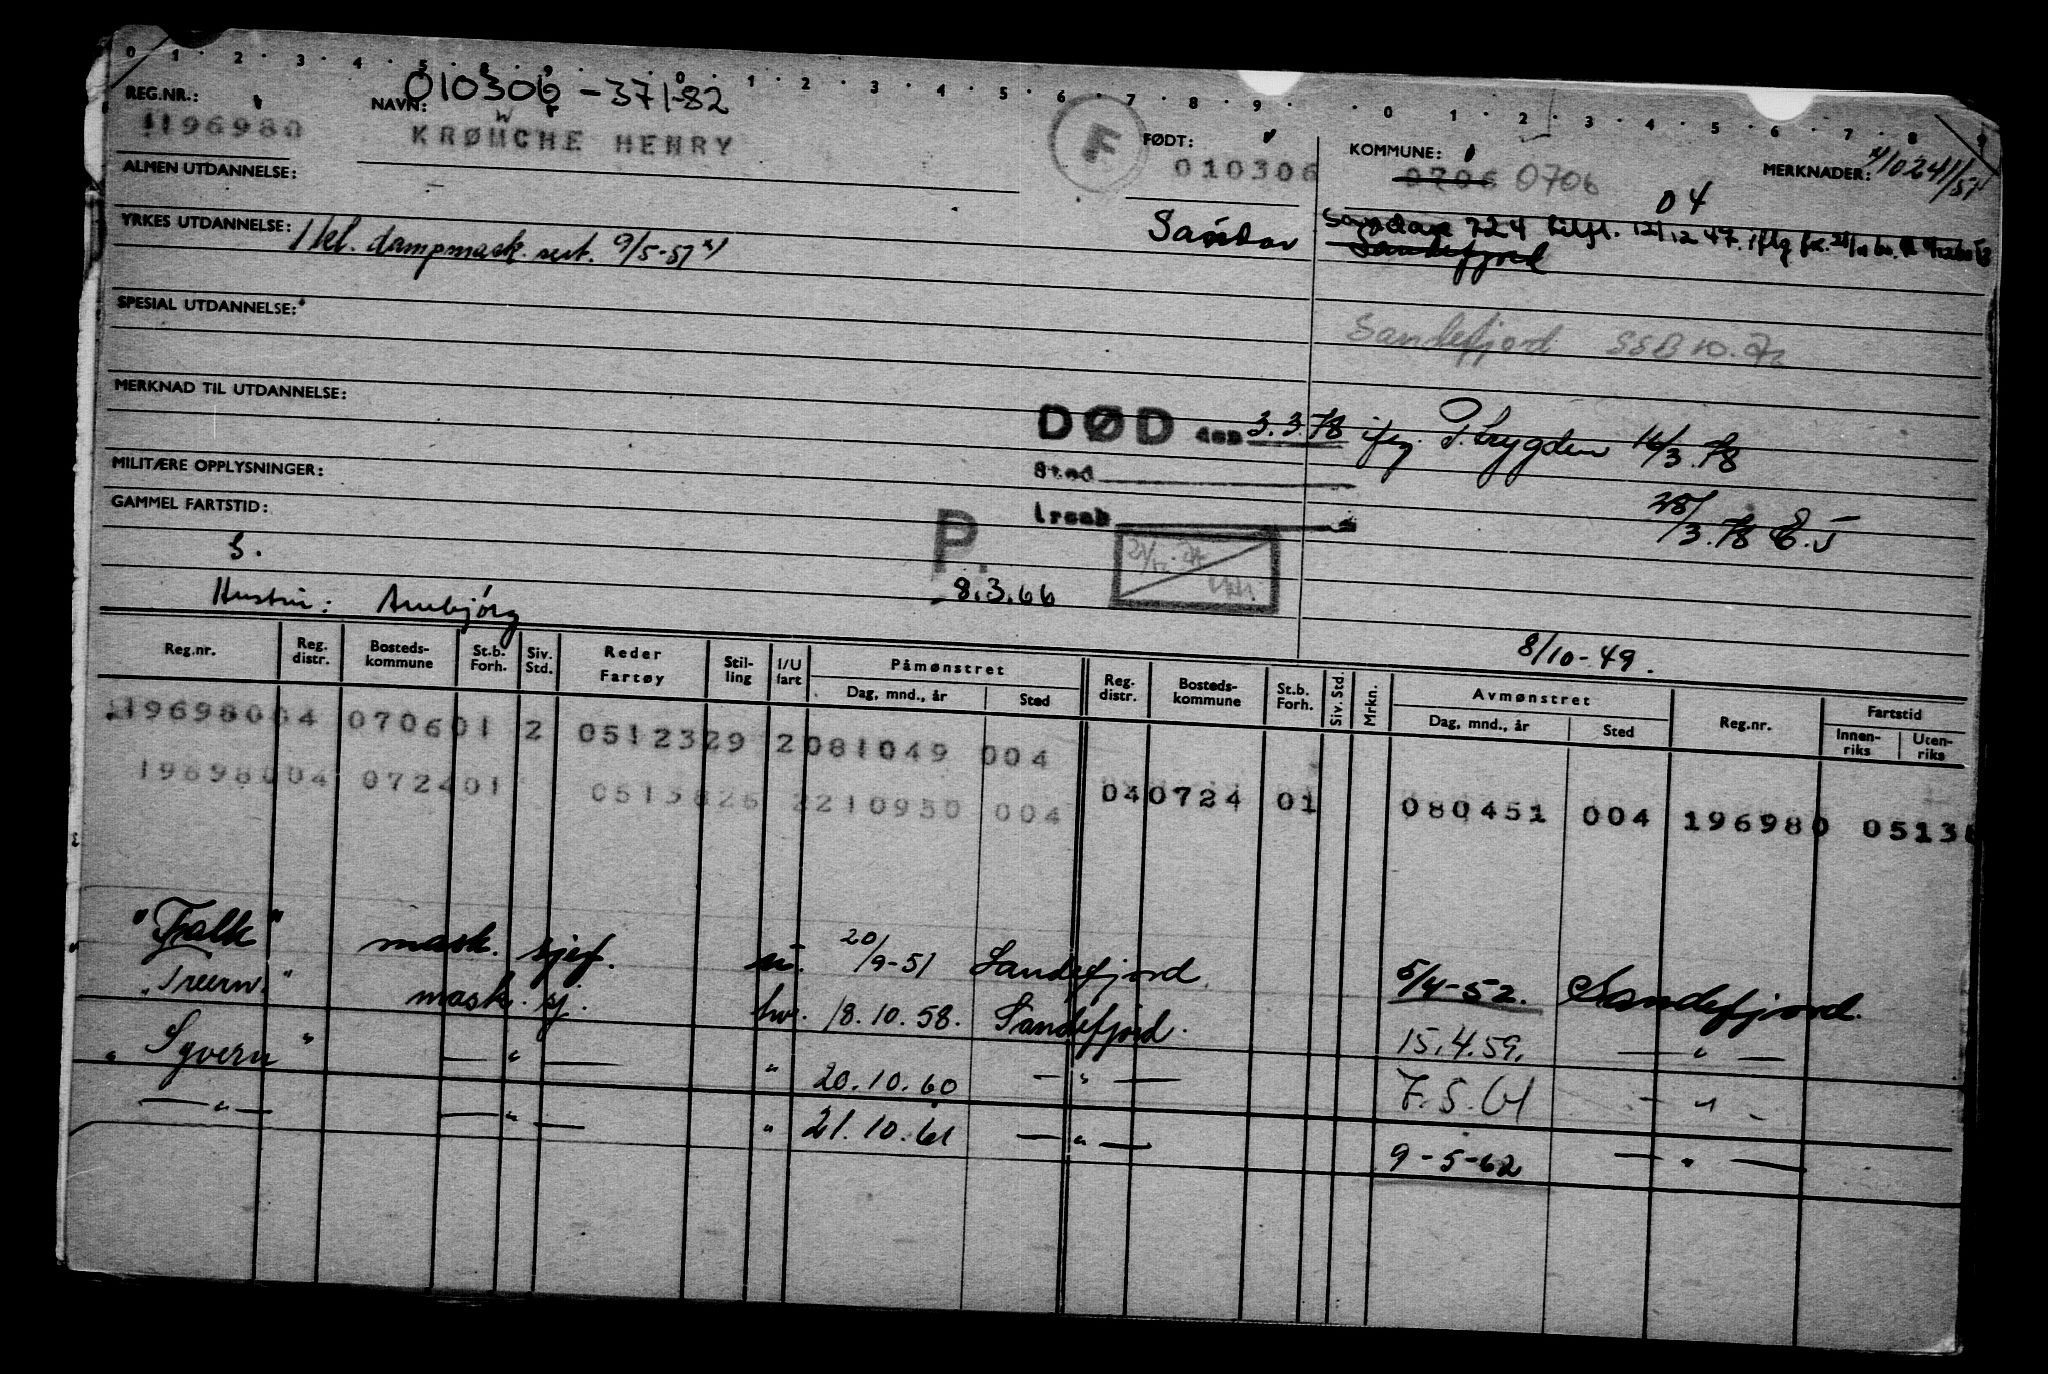 0 1 2 3 4 5 8 9 0 1 2 3 4 5 6 7 8 9 0 1 2 3 4 5 6 7 8 9
REG.NR.: NAVN: 010306-37182
196980 KRØNCHE HENRY F FØDT: 010306 KOMMUNE: 0706 0706 MERKNADER: x) 10241/51
ALMEN UTDANNELSE: - 04
YRKES UTDANNELSE: 1 kl. dampmask. sert. 9/5-51 x) Sandar Sandar 724 tilfl. 12/12 47.
Sandefjord
SPESIAL UTDANNELSE:
Sandefjord SSB 10.72
MERKNAD TIL UTDANNELSE:
DØD den 3.3.78 iføg. P.trygden 16/3.78
MILITÆRE OPPLYSNINGER: Sted
GAMMEL FARTSTID: Årsak 28/3.78 E.J
S. P.
Hustru: Annbjörg 8.3.66
8/10-49.
Reg.nr. Reg. distr. Bosteds-kommune St.b. Forh. Siv. Std. Reder Fartøy Stil-ling I/U fart Påmønstret Dag, mnd., år Sted Reg. distr. Bosteds-kommune St.b. Forh. Siv. Std. Mrkn. Avmønstret Dag, mnd., år Sted Reg.nr. Fartstid Innen-riks Uten-riks
19698004 070601 2 0512329 2081049 004
19698004 072401 2210950 004 040724 01 080451 004 196980 0513
"Falk" mask. sjef. u. 20/9-51 Sandefjord. 5/4-52. Sandefjord.
"Treern" mask. sj. hv. 18.10.58. Sandefjord. 15.4.59. — " —
"Syvern" — " — " 20.10.60 — " — 7.5.61 - " -
— " — — " — " 21.10.61 — " — 9-5-62 — " —